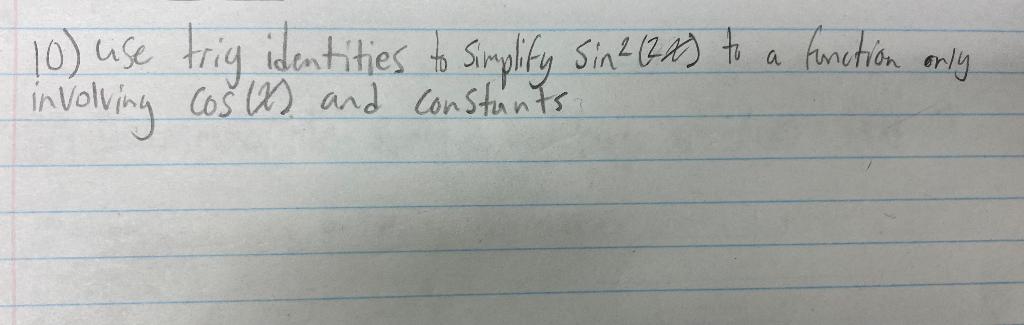 10) use trig identities to simplify sin²(2x) to a function only
involving cos(x) and constants